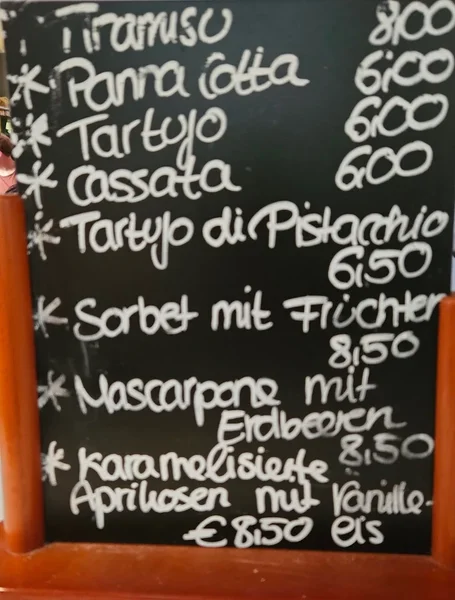 Tiramisu 8,00
* Panna Cotta 6,00
* Tartufo 6,00
* Cassata 6,00
* Tartufo di Pistacchio
6,50
* Sorbet mit Früchten
8,50
* Mascarpone mit
Erdbeeren
8,50
* Karamelisierte
Aprikosen mit Vanille-
€ 8,50 eis